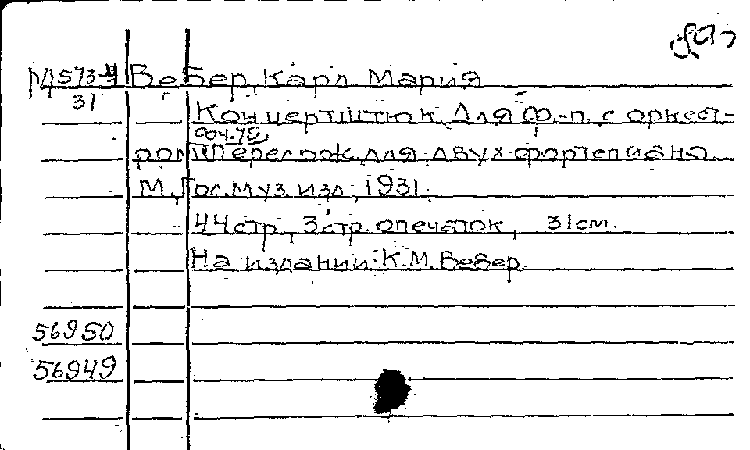 М573-4 Вебер, Карл Мария
31
Концертштюк для ф.-п. с оркест-
соч. 79
ром. Перелож. для двух фортепиано.
М., Гос. муз. изд., 1931.
44 стр., 3 стр. опечаток, 31 см.
На издании: К.М. Вебер.
56950
56949